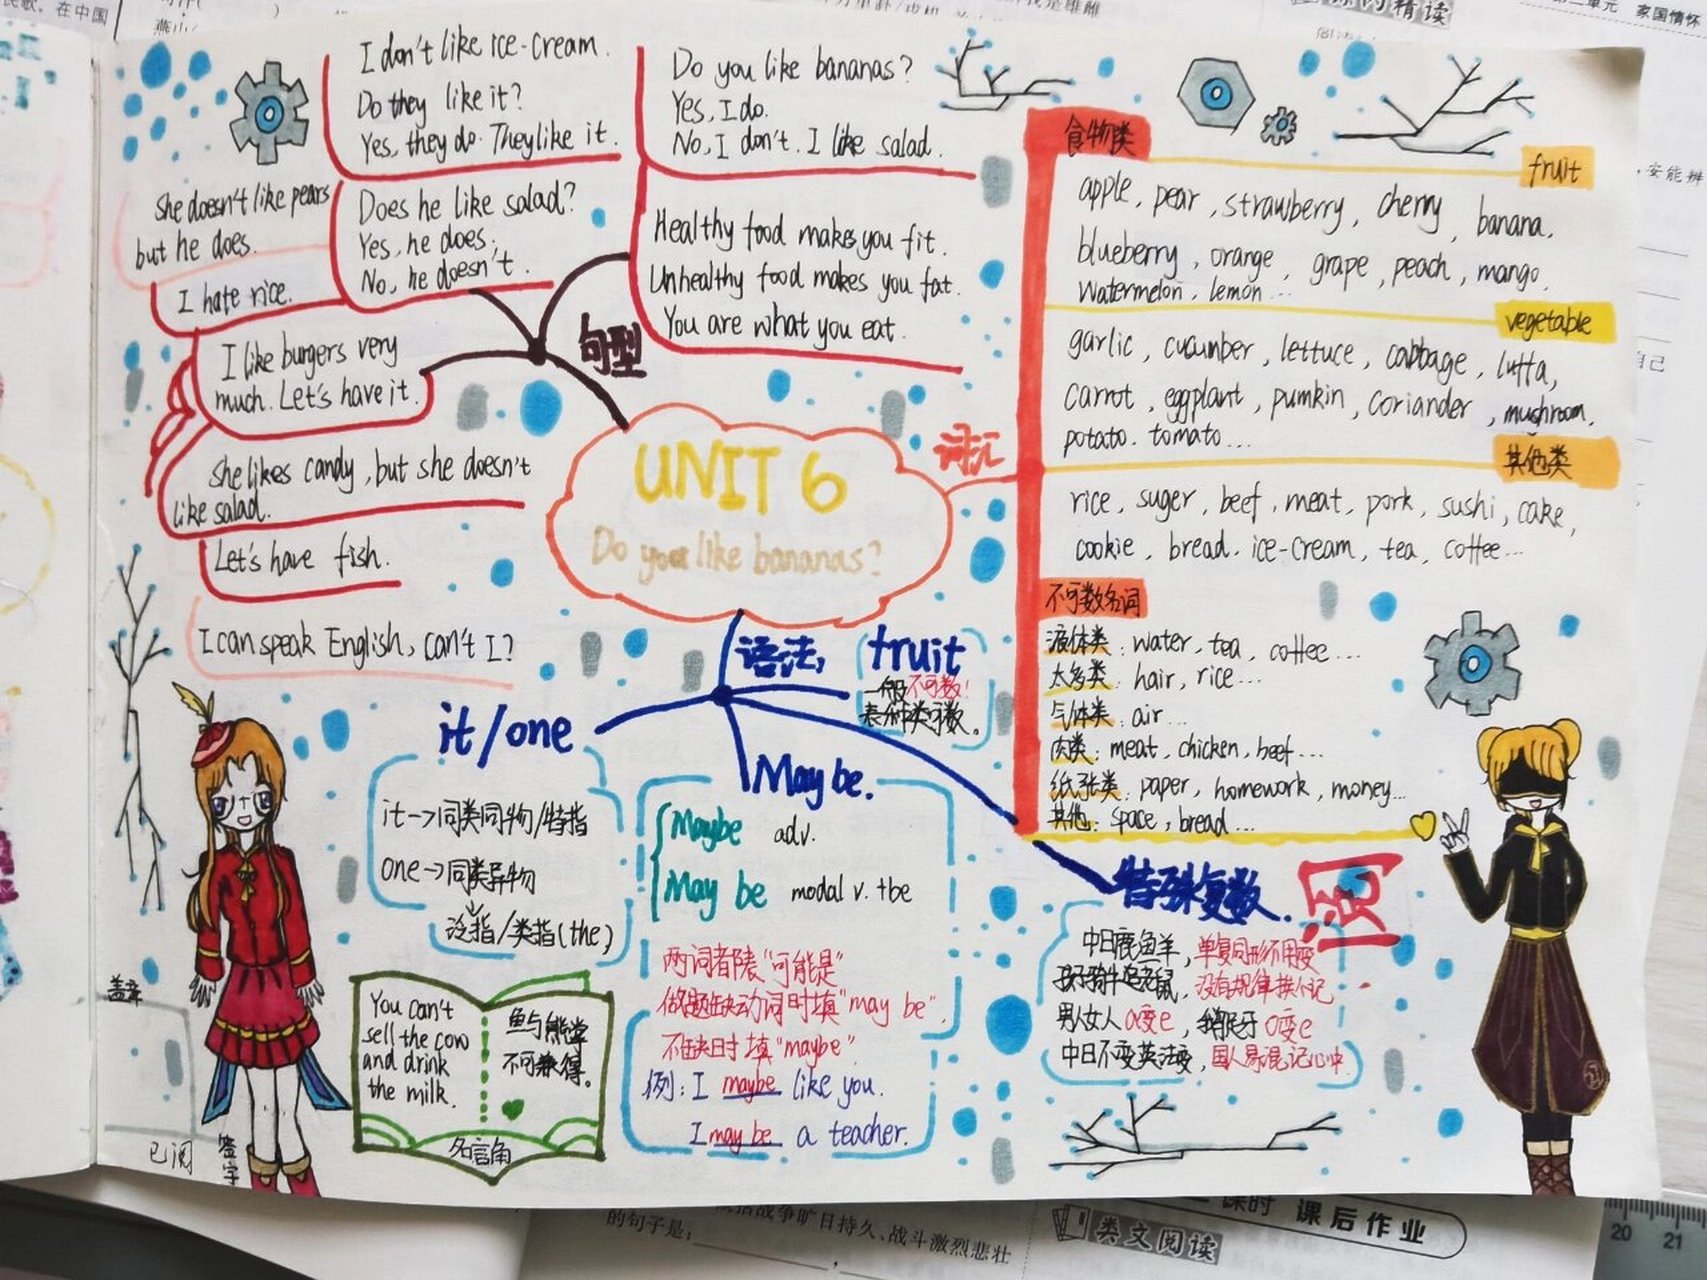 I don't like Ice-Cream.
Do they like it?
Yes, they do. They like it.
Do you like bananas?
Yes, I do.
No, I don't. I like salad.
She doesn't like pears
but he does.
Does he like salad?
Yes, he does.
No, he doesn't.
I hate rice.
Healthy food makes you fit.
Unhealthy food makes you fat.
You are what you eat.
I like burgers very
much. Let's have it.
She likes candy, but she doesn't
like salad.
Let's have fish.
I can speak English, can't I?
句型
UNIT 6
Do you like bananas?
词汇
食物类
fruit
apple, pear, strawberry, cherry, banana.
blueberry, orange, grape, peach, mango.
Watermelon, lemon...
vegetable
garlic, cucumber, lettuce, cabbage, luffa,
carrot, eggplant, pumkin, coriander, mushroom,
potato. tomato...
其他类
rice, suger, beef, meat, pork, sushi, cake,
cookie, bread. ice-cream, tea, coffee...
不可数名词
液体类: water, tea, coffee...
太多类: hair, rice...
气体类: air...
肉类: meat, chicken, beef...
纸张类: paper, homework, money...
其他: space, bread...
语法
fruit
一般不可数!
表示种类可数。
it/one
it→同类同物/特指
one→同类异物
泛指/类指(the)
May be.
Maybe adv.
May be modal v. +be
两词都表"可能是"
做题缺动词时填"may be",
不缺时填"maybe"
例: I maybe like you.
I may be a teacher.
特殊复数.
中日鹿鱼羊, 单复同形不用变
没有规律挨个记
男人女人a变e, 鹅足牙o变e
中日不变英法变, 国人易混记心中.
You can't
sell the cow
and drink
the milk.
鱼与熊掌
不可兼得。
名言角
盖章
已阅
签字
课时 课后作业
类文阅读
的句子是:
战争旷日持久、战斗激烈悲壮
第二单元 家国情怀
安能辨
自己
20 21